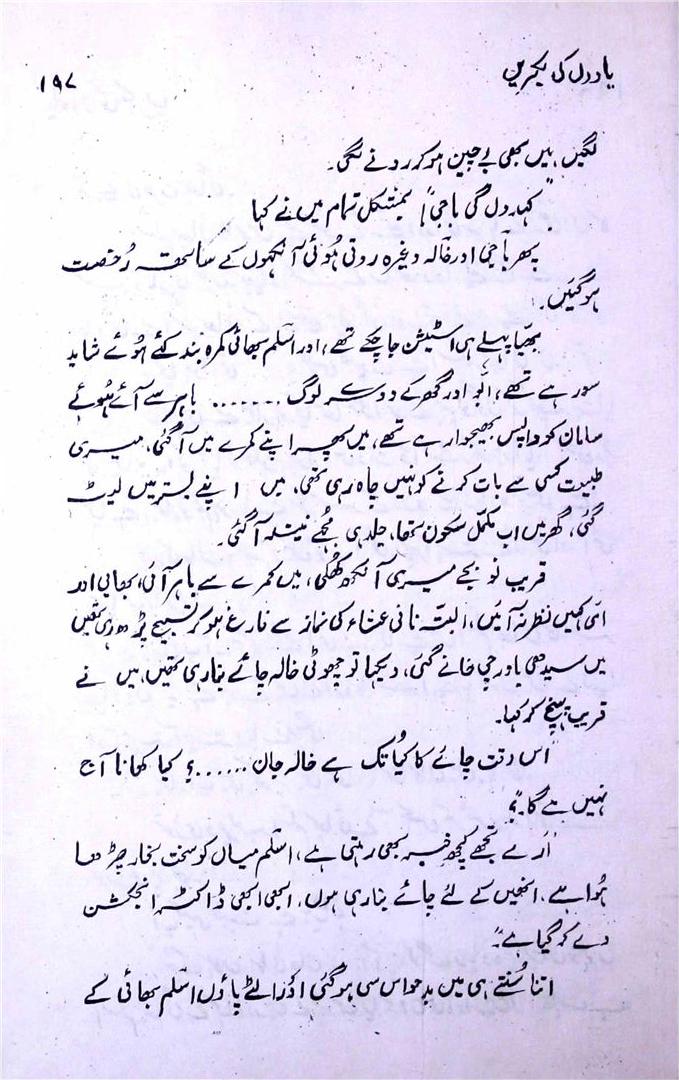 یادِ دل کی لکیریں
۱۹۷
لگیں، میں بھی بے چین ہو کر رونے لگی۔
"کہہ دوں گی باجی"! بمشکل تمام میں نے کہا
پھر باجی اور خالہ وغیرہ روتی ہُوئی آنکھوں کے ساتھ رُخصت
ہو گئیں۔
بھیّا پہلے ہی اسٹیشن جا چکے تھے، اور اسلم بھائی کمرہ بند کئے ہُوئے شاید
سو رہے تھے، ابّو اور گھر کے دوسرے لوگ ....... باہر سے آئے ہُوئے
سامان کو واپس بھیجوا رہے تھے، میں پھر اپنے کمرے میں آ گئی، میری
طبیعت کسی سے بات کرنے کو نہیں چاہ رہی تھی، میں اپنے بستر میں لیٹ
گئی، گھر میں اب مکمّل سکون تھا، جلد ہی مُجھے نیند آ گئی۔
قریب نو بجے میری آنکھ کھُلی، میں کمرے سے باہر آئی، بھابی اور
امّی کہیں نظر نہ آئیں، البتہ نانی عشاء کی نماز سے فارغ ہو کر تسبیح پڑھ رہی تھیں
میں سیدھی باورچی خانے گئی، دیکھا تو چھوٹی خالہ چائے بنا رہی تھیں، میں نے
قریب پہنچ کر کہا۔
"اس وقت چائے کا کیا تُک ہے خالہ جان ......؟ کیا کھانا آج
نہیں بنے گا۔"؟
"ارے تجھے کچھ خبر بھی رہتی ہے، اسلم میاں کو سخت بخار چڑھا
ہُوا ہے، انھیں کے لئے چائے بنا رہی ہوں، ابھی ابھی ڈاکٹر انجکشن
دے کر گیا ہے۔"
اتنا سُنتے ہی میں بدحواس سی ہو گئی اور اُلٹے پاؤں اسلم بھائی کے